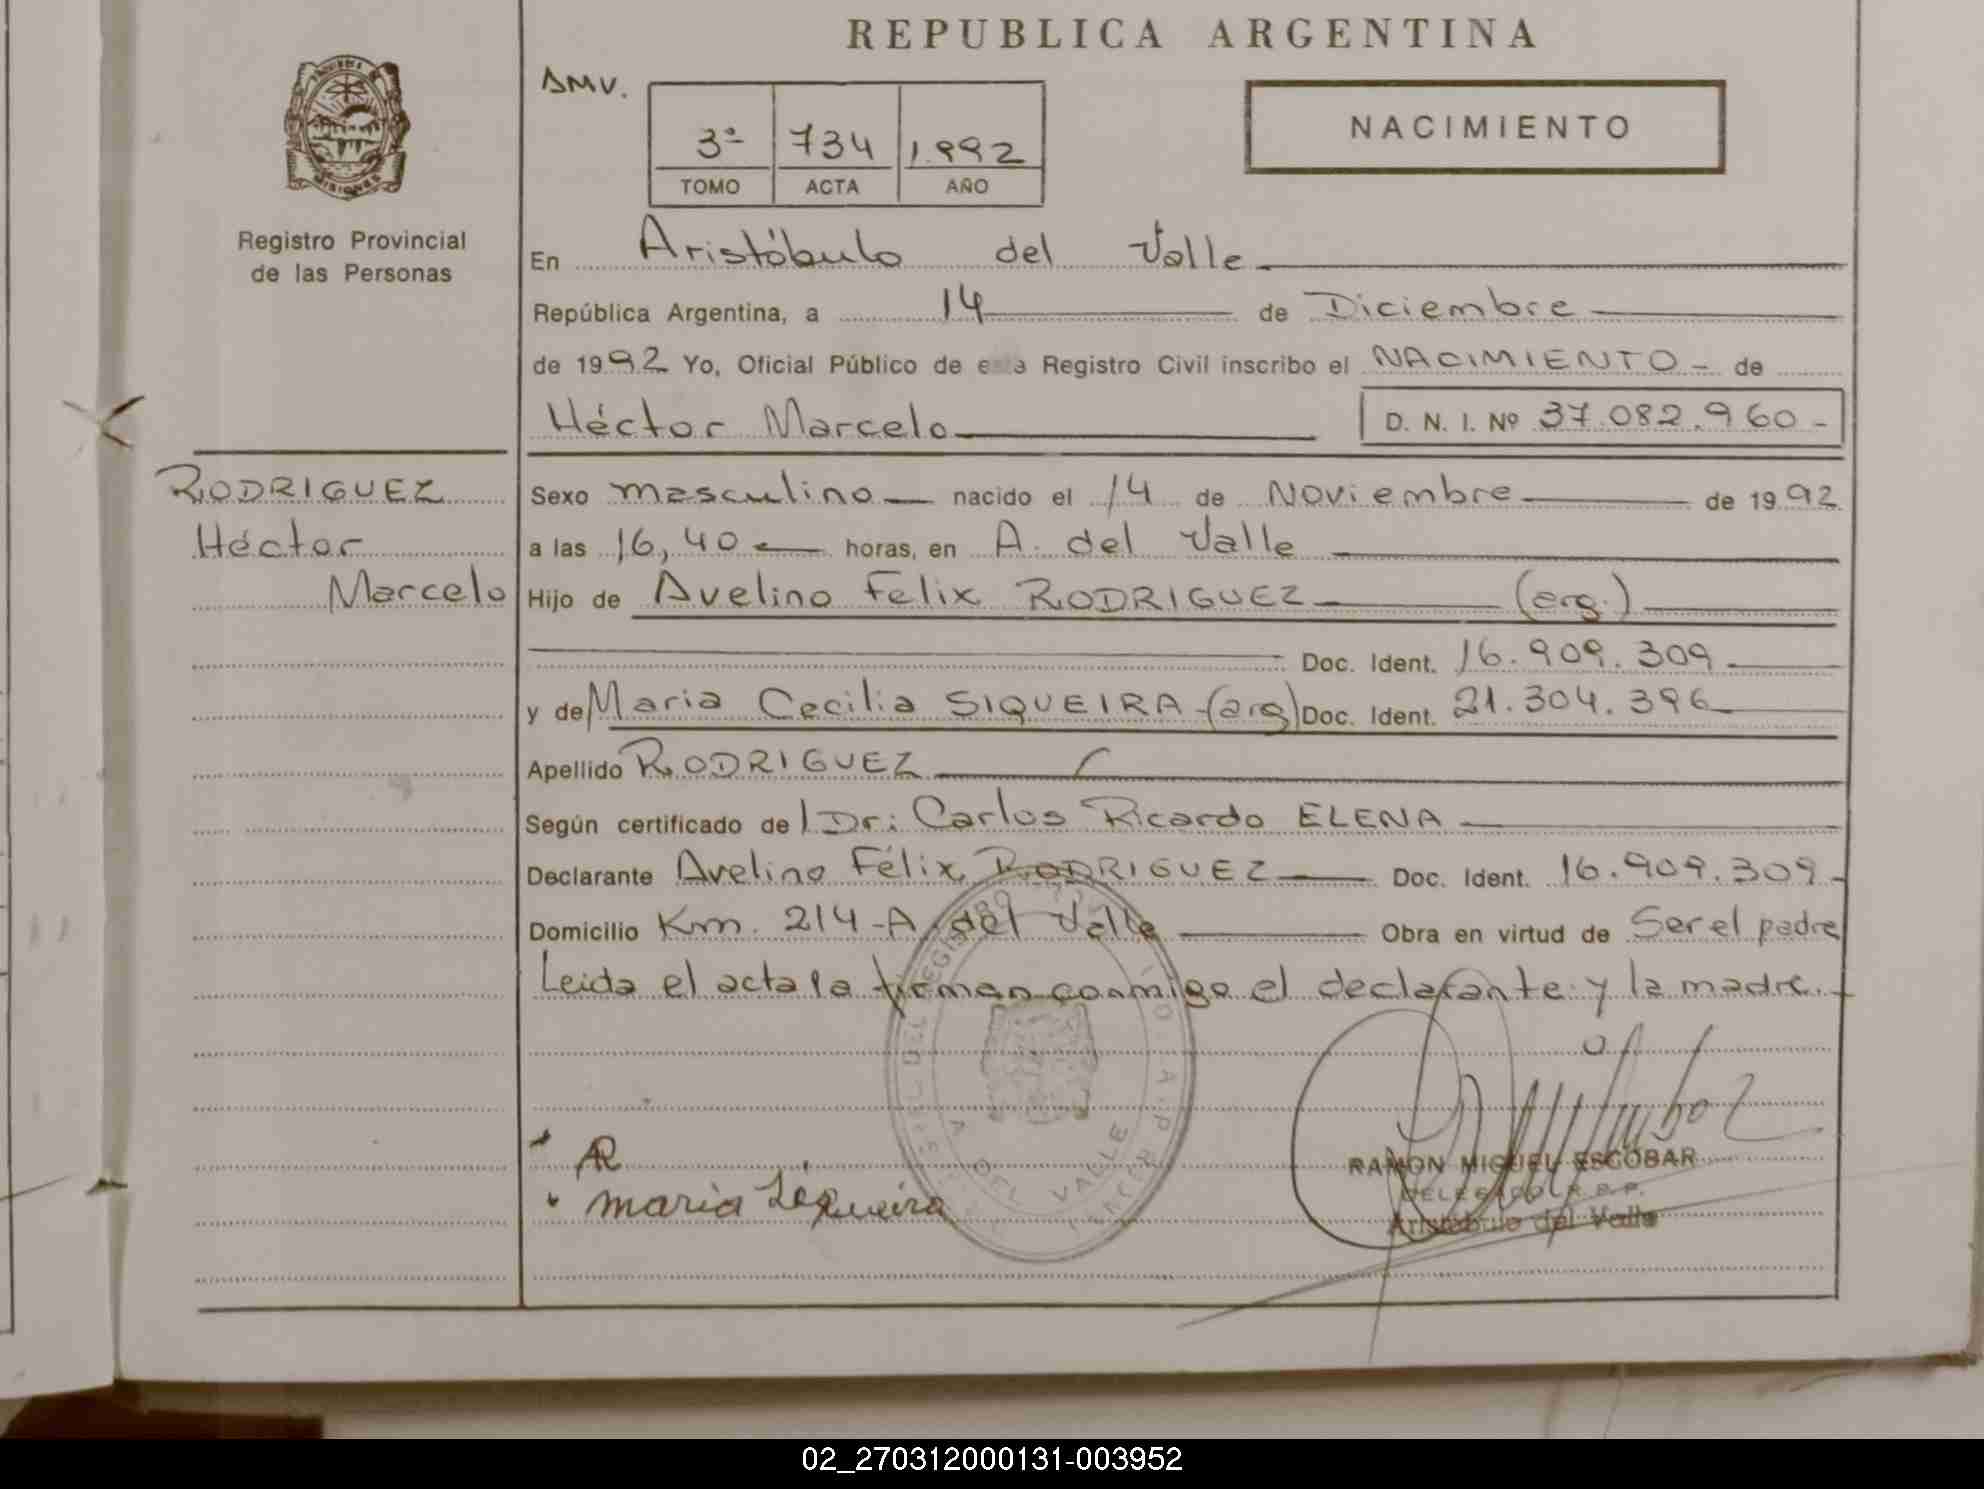 REPUBLICA ARGENTINA
MISIONES
Registro Provincial
de las Personas
3ª 734 1.992
TOMO ACTA AÑO
NACIMIENTO
En Aristóbulo del Valle
República Argentina, a 14 de Diciembre
de 1992 Yo, Oficial Público de esta Registro Civil inscribo el NACIMIENTO - de
Héctor Marcelo D. N. I. Nº 37.082.960-
RODRIGUEZ
Héctor
Marcelo
Sexo masculino nacido el 14 de Noviembre de 1992
a las 16,40 horas, en A. del Valle
Hijo de Avelino Felix RODRIGUEZ (arg.)
Doc. Ident. 16.909.309
y de Maria Cecilia SIQUEIRA (arg) Doc. Ident. 21.304.396
Apellido RODRIGUEZ
Según certificado de l Dr: Carlos Ricardo ELENA
Declarante Avelino Félix RODRIGUEZ Doc. Ident. 16.909.309-
Domicilio Km. 214-A. del Valle Obra en virtud de Ser el padre
Leida el acta la firman conmigo el declarante y la madre.-
AR
maria Siqueira
A. DEL VALLE
RAMON MIGUEL ESCOBAR
DELEGADO R.P.P.
Aristóbulo del Valle
02_270312000131-003952